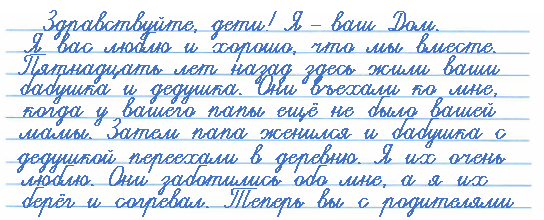 Здравствуйте, дети! Я – ваш Дом.
Я вас люблю и хорошо, что мы вместе.
Пятнадцать лет назад здесь жили ваши
бабушка и дедушка. Они въехали ко мне,
когда у вашего папы ещё не было вашей
мамы. Затем папа женился и бабушка с
дедушкой переехали в деревню. Я их очень
люблю. Они заботились обо мне, а я их
берёг и согревал. Теперь вы с родителями